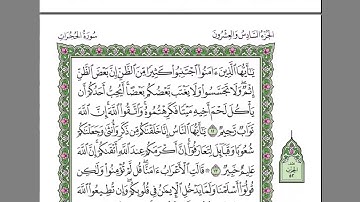 الجزء السادس والعشرون
سورة الحجرات
يَٰٓأَيُّهَا ٱلَّذِينَ ءَامَنُوا۟ ٱجْتَنِبُوا۟ كَثِيرًا مِّنَ ٱلظَّنِّ إِنَّ بَعْضَ ٱلظَّنِّ
إِثْمٌ وَلَا تَجَسَّسُوا۟ وَلَا يَغْتَب بَّعْضُكُم بَعْضًا أَيُحِبُّ أَحَدُكُمْ أَن
يَأْكُلَ لَحْمَ أَخِيهِ مَيْتًا فَكَرِهْتُمُوهُ وَٱتَّقُوا۟ ٱللَّهَ إِنَّ ٱللَّهَ
تَوَّابٌ رَّحِيمٌ ١٢ يَٰٓأَيُّهَا ٱلنَّاسُ إِنَّا خَلَقْنَٰكُم مِّن ذَكَرٍ وَأُنثَىٰ وَجَعَلْنَٰكُمْ
شُعُوبًا وَقَبَآئِلَ لِتَعَارَفُوٓا۟ إِنَّ أَكْرَمَكُمْ عِندَ ٱللَّهِ أَتْقَىٰكُمْ إِنَّ ٱللَّهَ
عَلِيمٌ خَبِيرٌ ١٣ قَالَتِ ٱلْأَعْرَابُ ءَامَنَّا قُل لَّمْ تُؤْمِنُوا۟ وَلَٰكِن
قُولُوٓا۟ أَسْلَمْنَا وَلَمَّا يَدْخُلِ ٱلْإِيمَٰنُ فِى قُلُوبِكُمْ وَإِن تُطِيعُوا۟ ٱللَّهَ